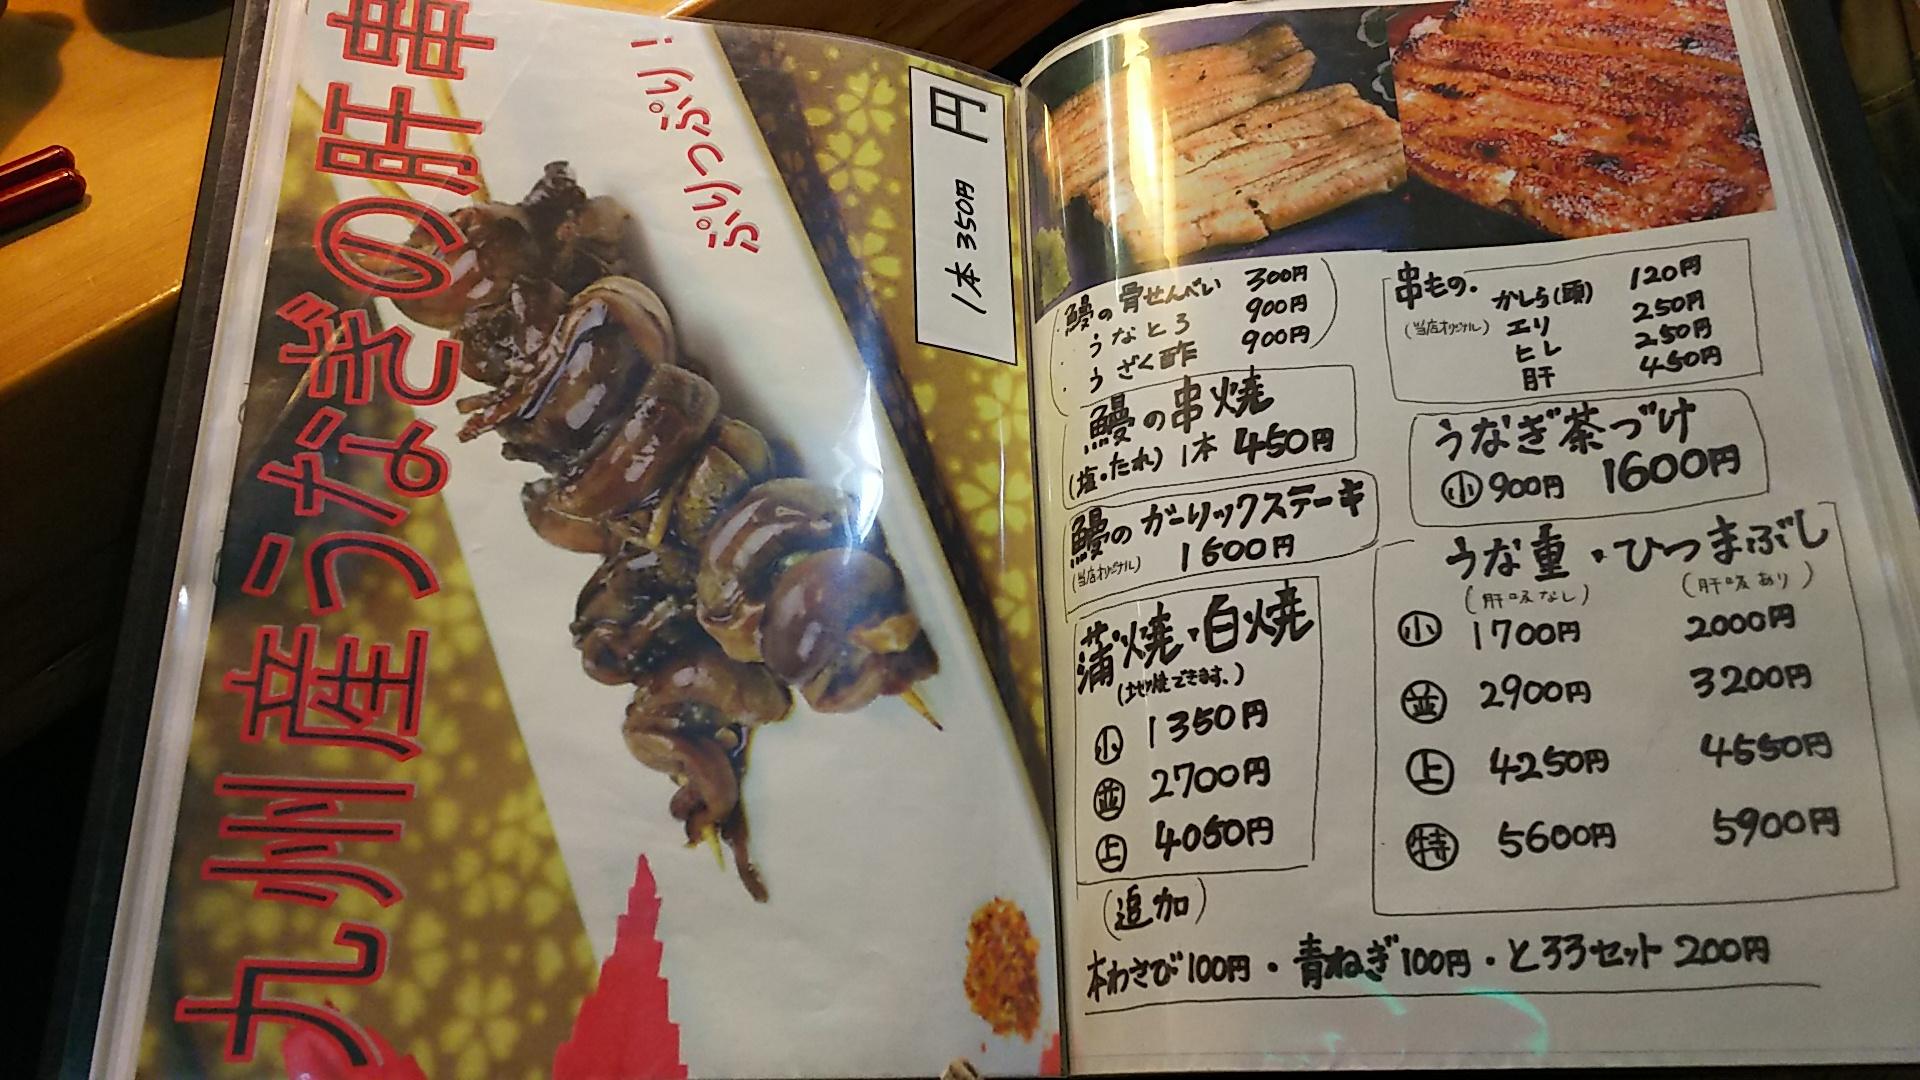 九州産うなぎの肝串
ぷりっぷり!
円
1本 350円
鰻の骨せんべい 300円
・うなとろ 900円
・うざく酢 900円
鰻の串焼
(塩・たれ) 1本 450円
鰻のガーリックステーキ
(当店オリジナル) 1600円
蒲焼・白焼
(地焼できます。)
小 1350円
並 2700円
上 4050円
串もの・
(当店オリジナル)
かしら(頭) 120円
エリ 250円
ヒレ 250円
肝 450円
うなぎ茶づけ
小 900円 1600円
うな重・ひつまぶし
(肝吸なし) (肝吸あり)
小 1700円 2000円
並 2900円 3200円
上 4250円 4550円
特 5600円 5900円
(追加)
本わさび100円・青ねぎ100円・とろろセット200円